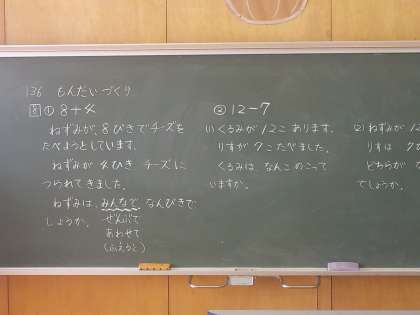 136 もんだいづくり
8 ① 8+4
ねずみが、8ひきでチーズを
たべようとしています。
ねずみが4ひき チーズに
つられてきました。
ねずみは、みんなで、なんびきで
しょうか。
ぜんぶで
あわせて
(ふえると)
② 12-7
(1) くるみが12こあります。
りすが7こたべました。
くるみは、なんこのこって
いますか。
(2) ねずみが12
りすは 7ひ
どちらが
でしょう。